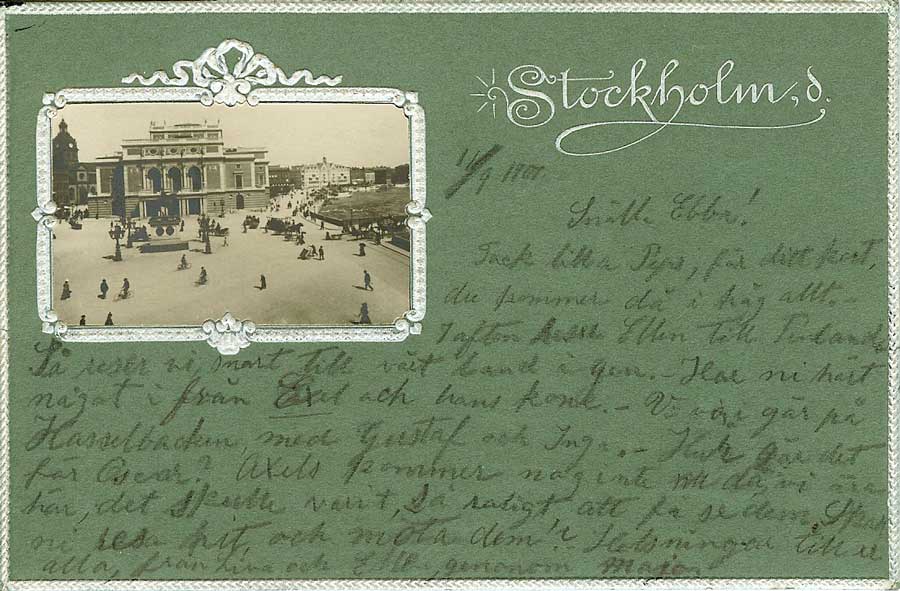 Stockholm, d.
11/9 1900.
Snälla Ebba!
Tack lilla Peps, för ditt kort,
du kommer då i håg allt.
I afton reser Ellen till
Så reser vi snart till vårt land i gen. - Har ni hört
något i från Axel och hans kone. - Vi voro i går på
Hasselbacken, med Gustaf och Inga. - Hur går det
för Oscar? Axels kommer nog inte då vi äro
här, det skulle varit så roligt att få se dem.
ni resa hit, och möta dem? - Helsningar till er
alla, från och genonom